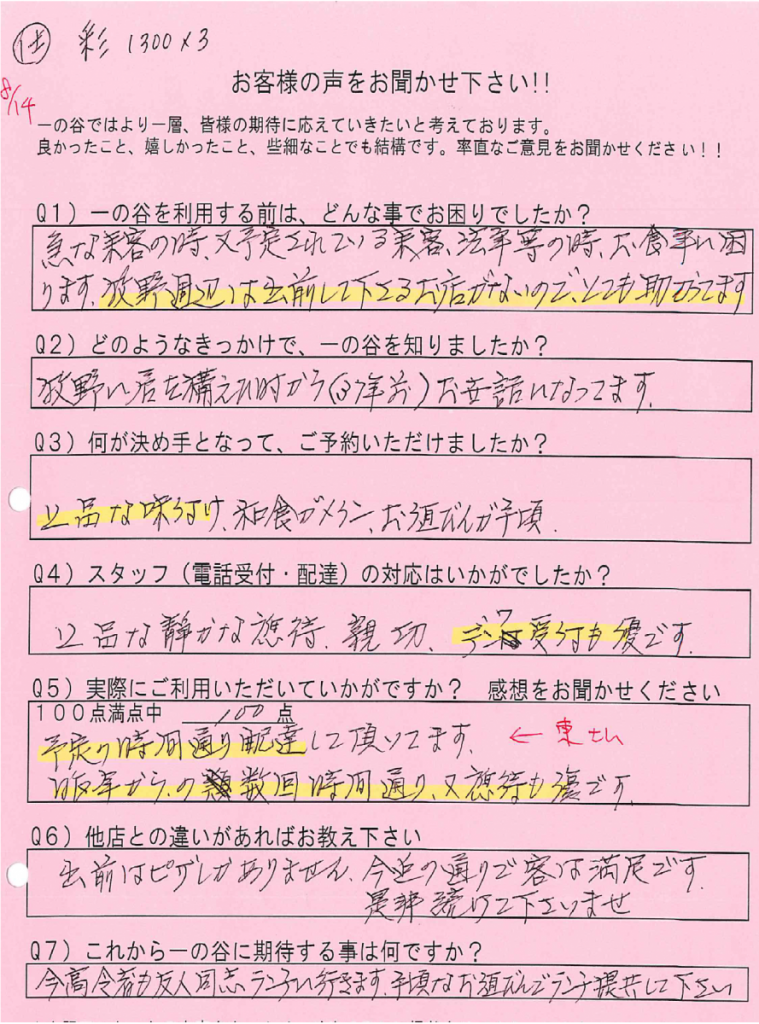 仕 彩 1300×3
8/14
お客様の声をお聞かせ下さい!!
一の谷ではより一層、皆様の期待に応えていきたいと考えております。
良かったこと、嬉しかったこと、些細なことでも結構です。率直なご意見をお聞かせください！！
Q1）一の谷を利用する前は、どんな事でお困りでしたか？
急な来客の時、又予定されている来客、法事等の時、お食事に困
ります。牧野周辺は出前して下さるお店がないので、とても助かってます
Q2）どのようなきっかけで、一の谷を知りましたか？
牧野に居を構えた時から（37年前）お世話になってます。
Q3）何が決め手となって、ご予約いただけましたか？
上品な味付け、和食がメイン、お値だんが手頃.
Q4）スタッフ（電話受付・配達）の対応はいかがでしたか？
上品な静かな応待、親切、デンワ受付も優です.
Q5）実際にご利用いただいていかがですか？ 感想をお聞かせください
100点満点中 100 点
予定の時間通り配達して頂いてます. ←東さん
昨年から、の数回時間通り、又応待も優です.
Q6）他店との違いがあればお教え下さい
出前はピザしかありません、今迄の通りで客は満足です.
是非続けて下さいませ
Q7）これから一の谷に期待する事は何ですか？
今高令者も友人同志ランチに行きます、手頃なお値だんでランチ提供して下さい